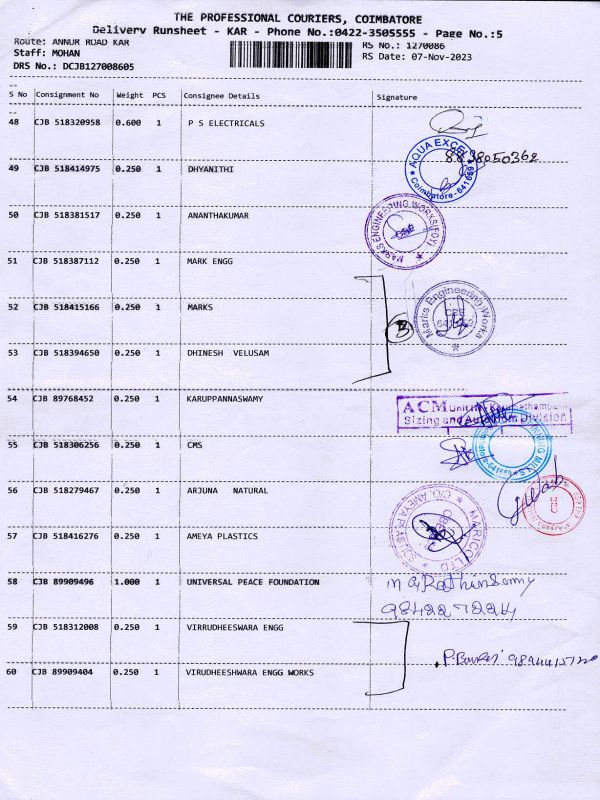 THE PROFESSIONAL COURIERS, COIMBATORE
Delivery Runsheet - KAR - Phone No.:0422-3505555 - Page No.:5
Route: ANNUR ROAD KAR
RS No.: 1270086
Staff: MOHAN
RS Date: 07-Nov-2023
DRS No.: DCJB127008605
S No Consignment No Weight PCS Consignee Details Signature
48 CJB 518320958 0.600 1 P S ELECTRICALS
AQUA EXCEL
8838050362
Coimbatore-641659
49 CJB 518414975 0.250 1 DHYANITHI
50 CJB 518381517 0.250 1 ANANTHAKUMAR
MARKS ENGINEERING WORKS
51 CJB 518387112 0.250 1 MARK ENGG
52 CJB 518415166 0.250 1 MARKS
Marks Engineering Works
3
53 CJB 518394650 0.250 1 DHINESH VELUSAM
54 CJB 89768452 0.250 1 KARUPPANNASWAMY
ACM Unit
Sizing and Division
55 CJB 518306256 0.250 1 CMS
MILLS
56 CJB 518279467 0.250 1 ARJUNA NATURAL
MARICO LTD
C/O. AMEYA PLAS
57 CJB 518416276 0.250 1 AMEYA PLASTICS
58 CJB 89909496 1.000 1 UNIVERSAL PEACE FOUNDATION
59 CJB 518312008 0.250 1 VIRRUDHEESWARA ENGG
60 CJB 89909404 0.250 1 VIRUDHEESHWARA ENGG WORKS